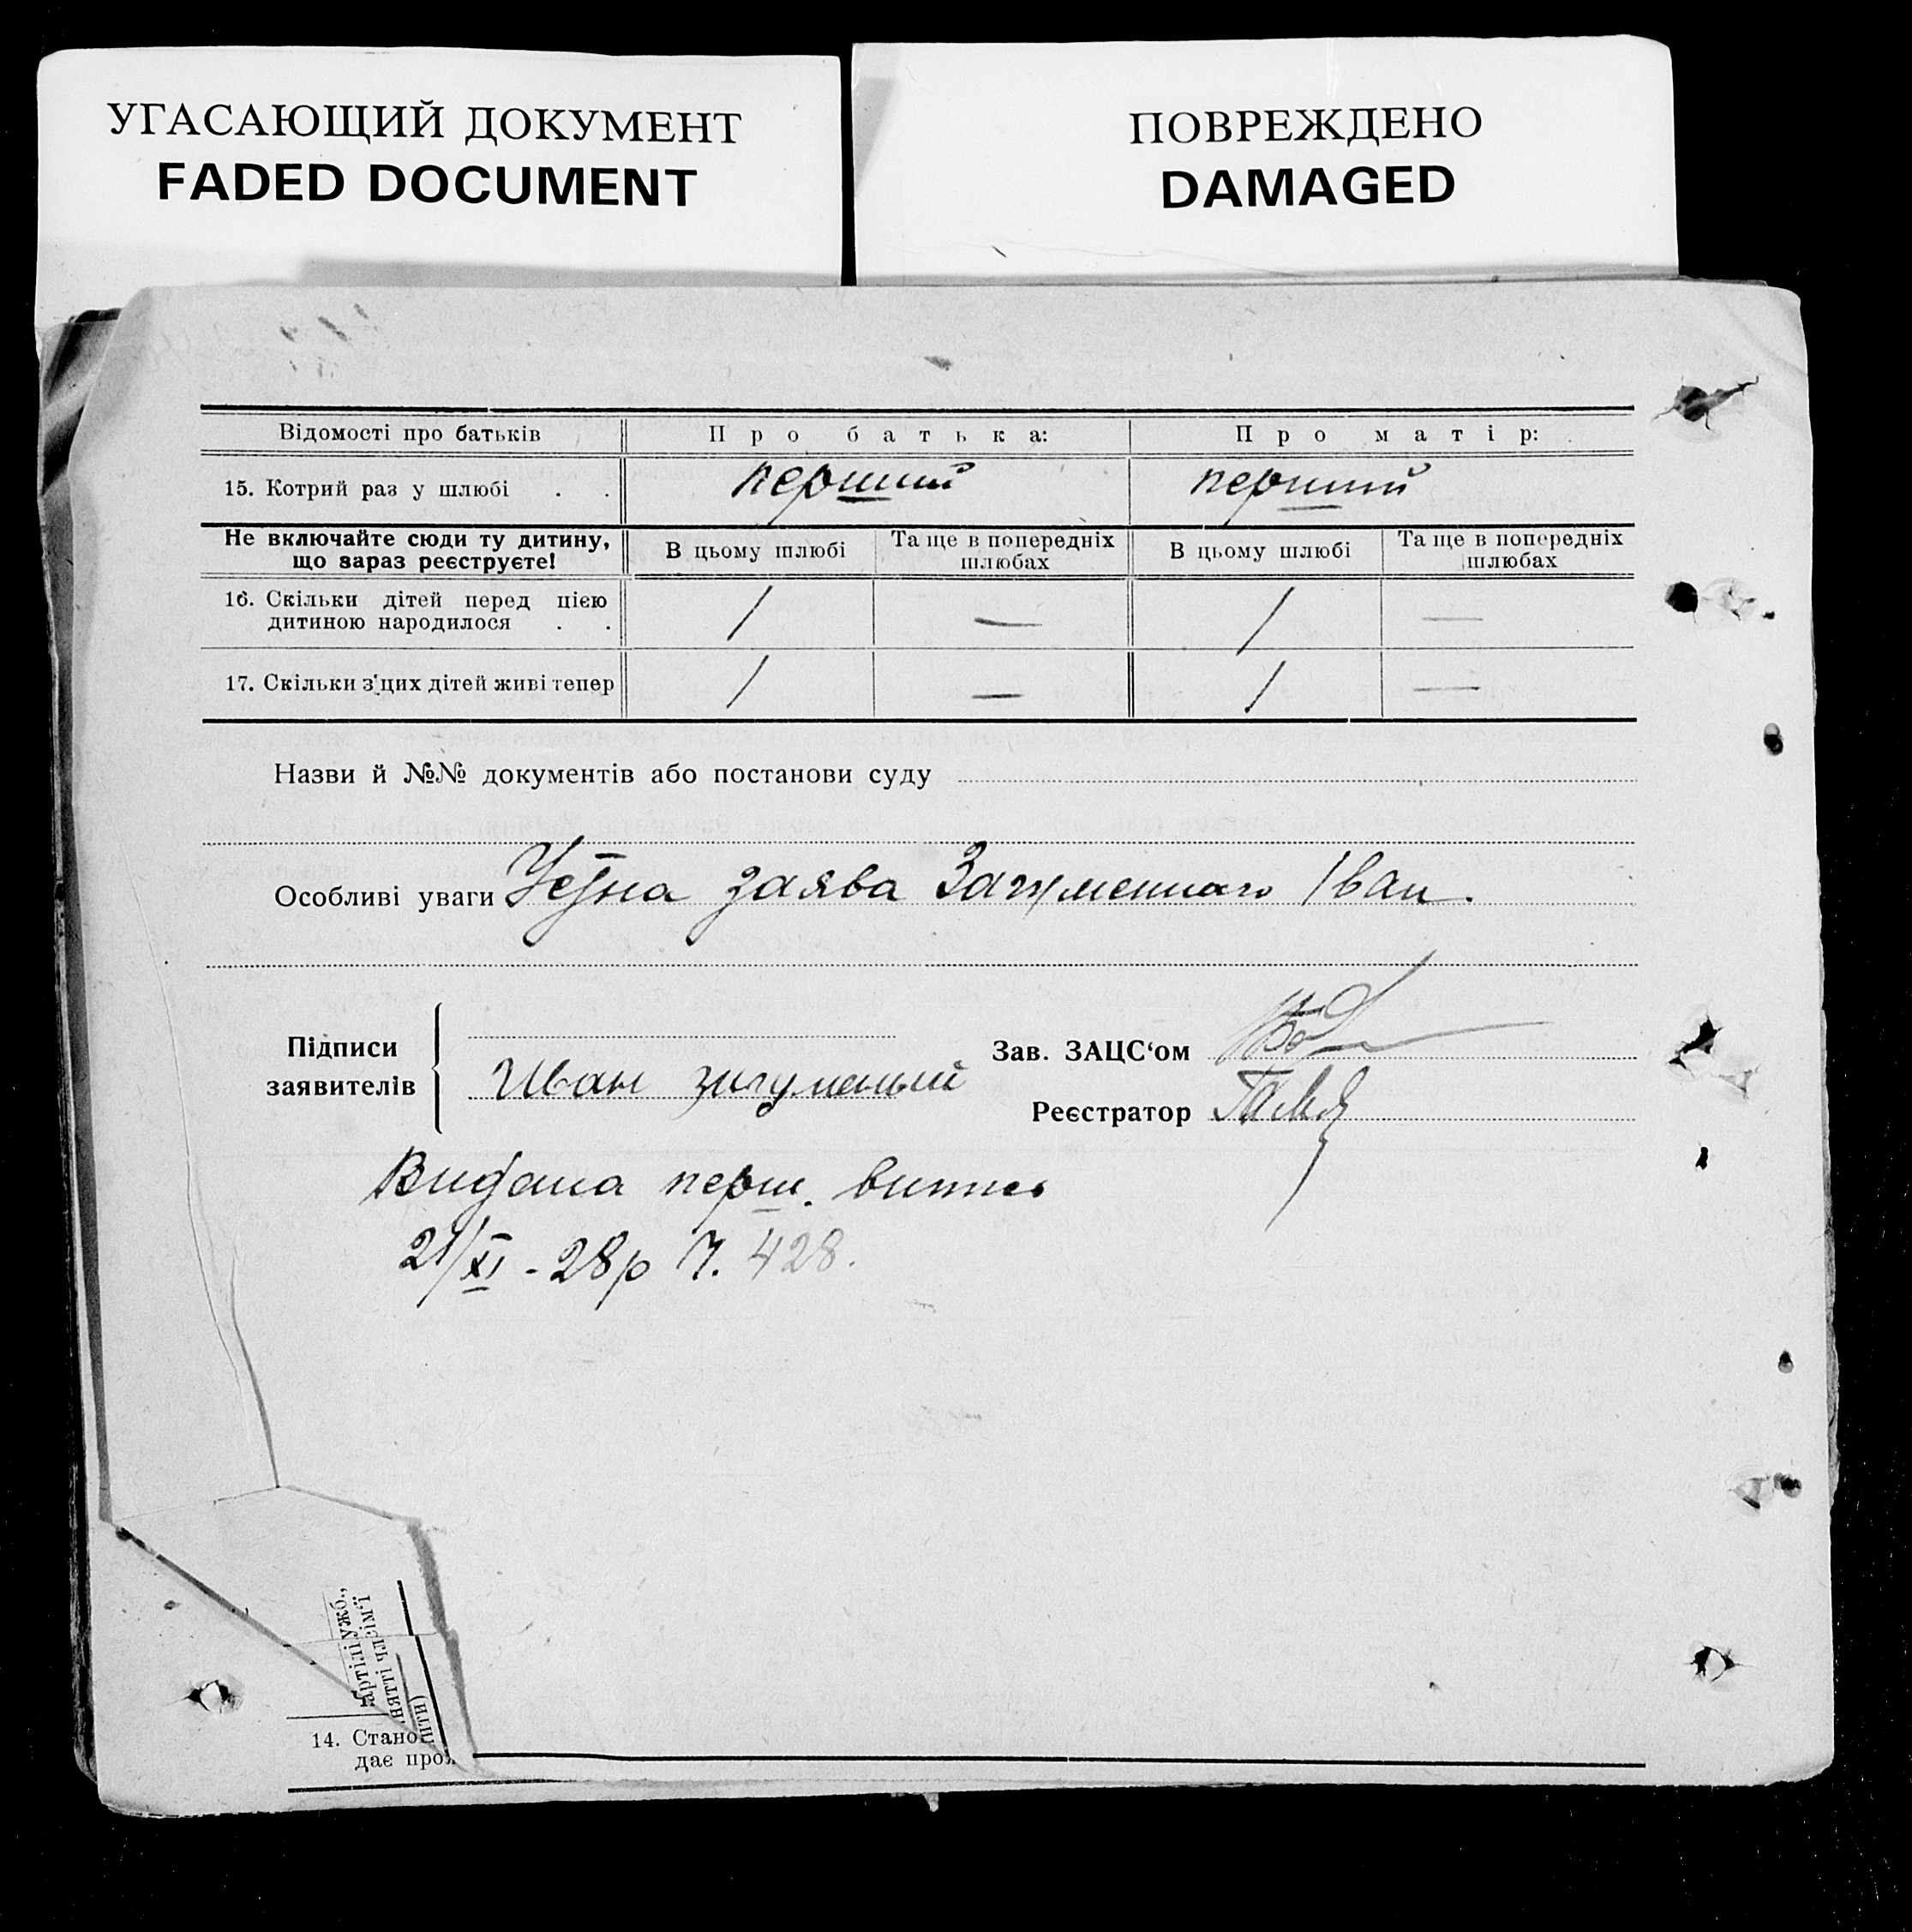 УГАСАЮЩИЙ ДОКУМЕНТ
FADED DOCUMENT
ПОВРЕЖДЕНО
DAMAGED
Відомості про батьків Про батька: Про матір:
15. Котрий раз у шлюбі . . перший перший
Не включайте сюди ту дитину, що зараз реєструєте! В цьому шлюбі Та ще в попередніх шлюбах В цьому шлюбі Та ще в попередніх шлюбах
16. Скільки дітей перед цією дитиною народилося . . 1 — 1 —
17. Скільки з'цих дітей живі тепер 1 — 1 —
Назви й №№ документів або постанови суду
Особливі уваги Устна заява Загуменного Іван.
Підписи заявителів
Иван
Зав. ЗАЦС'ом
Реєстратор
Видана перш. випись
21/XI - 28р Ч. 428.
14. Стано
дає про